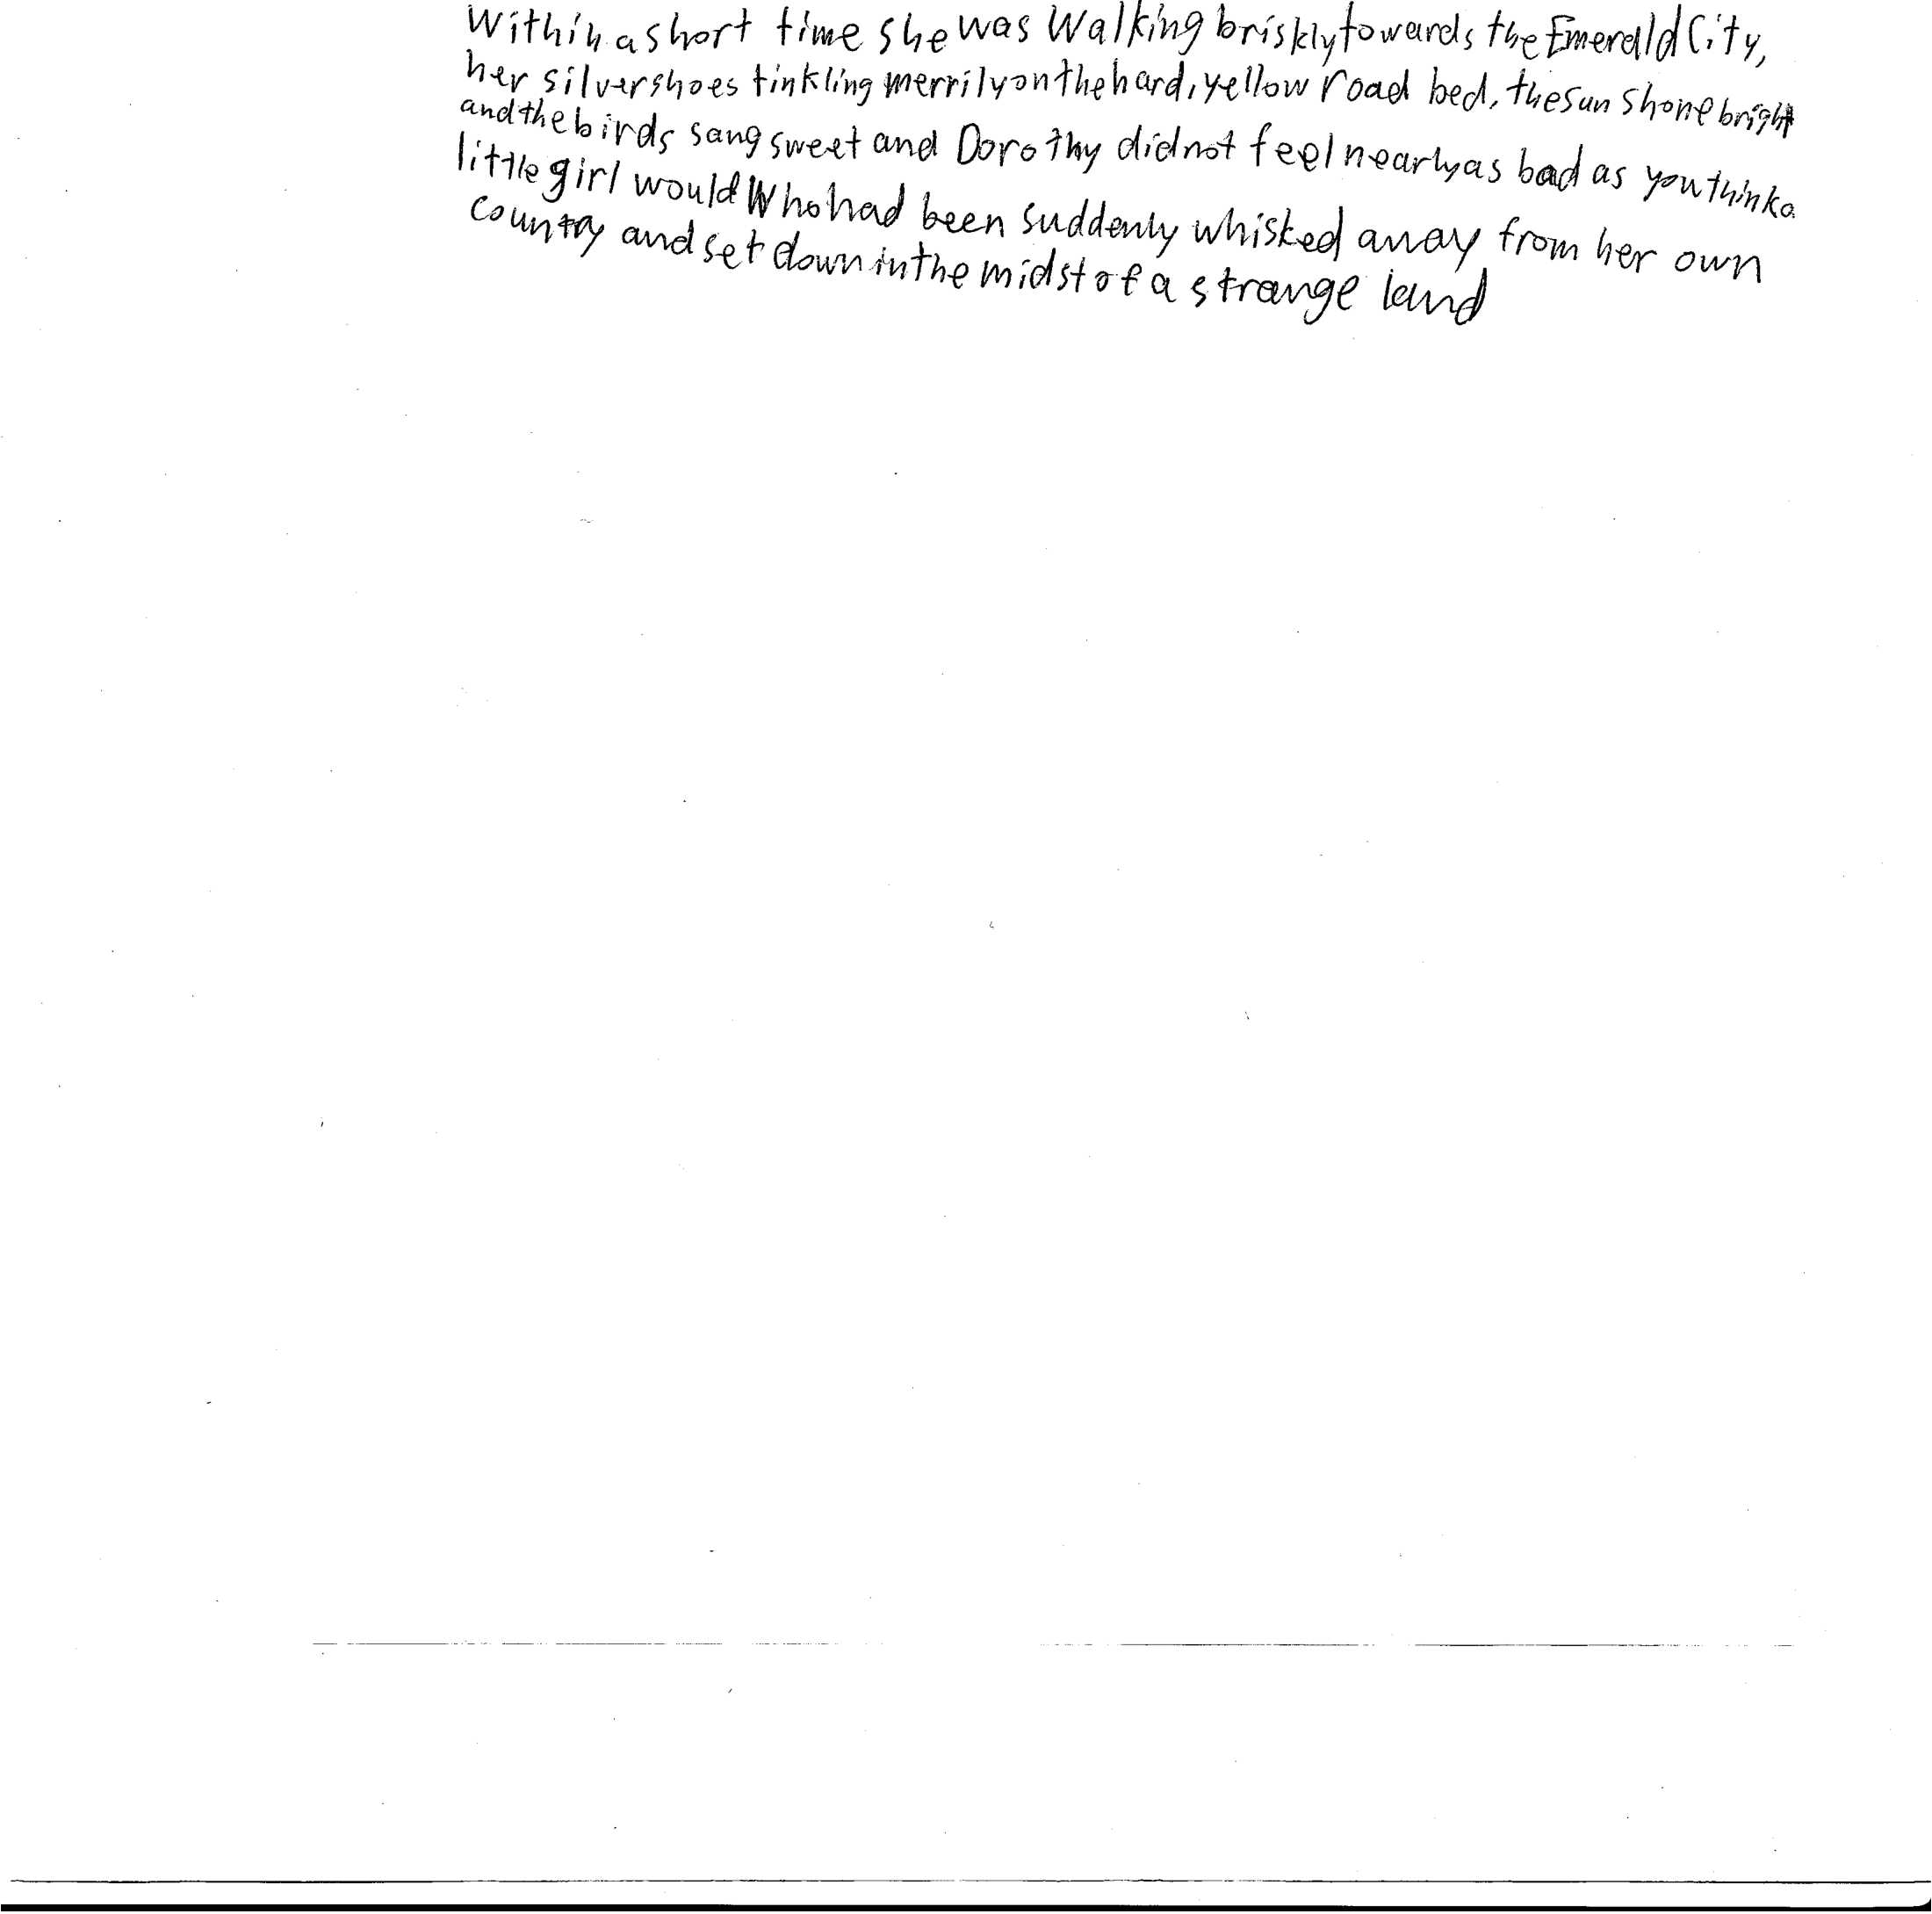 Within a short time she was Walking briskly towards the Emerald City,
her silver shoes tinkling merrily on the hard, yellow road bed, the sun shone bright
and the birds sang sweet and Dorothy did not feel nearly as bad as you think a
little girl would Who had been suddenly whisked away from her own
country and set down in the midst of a strange land